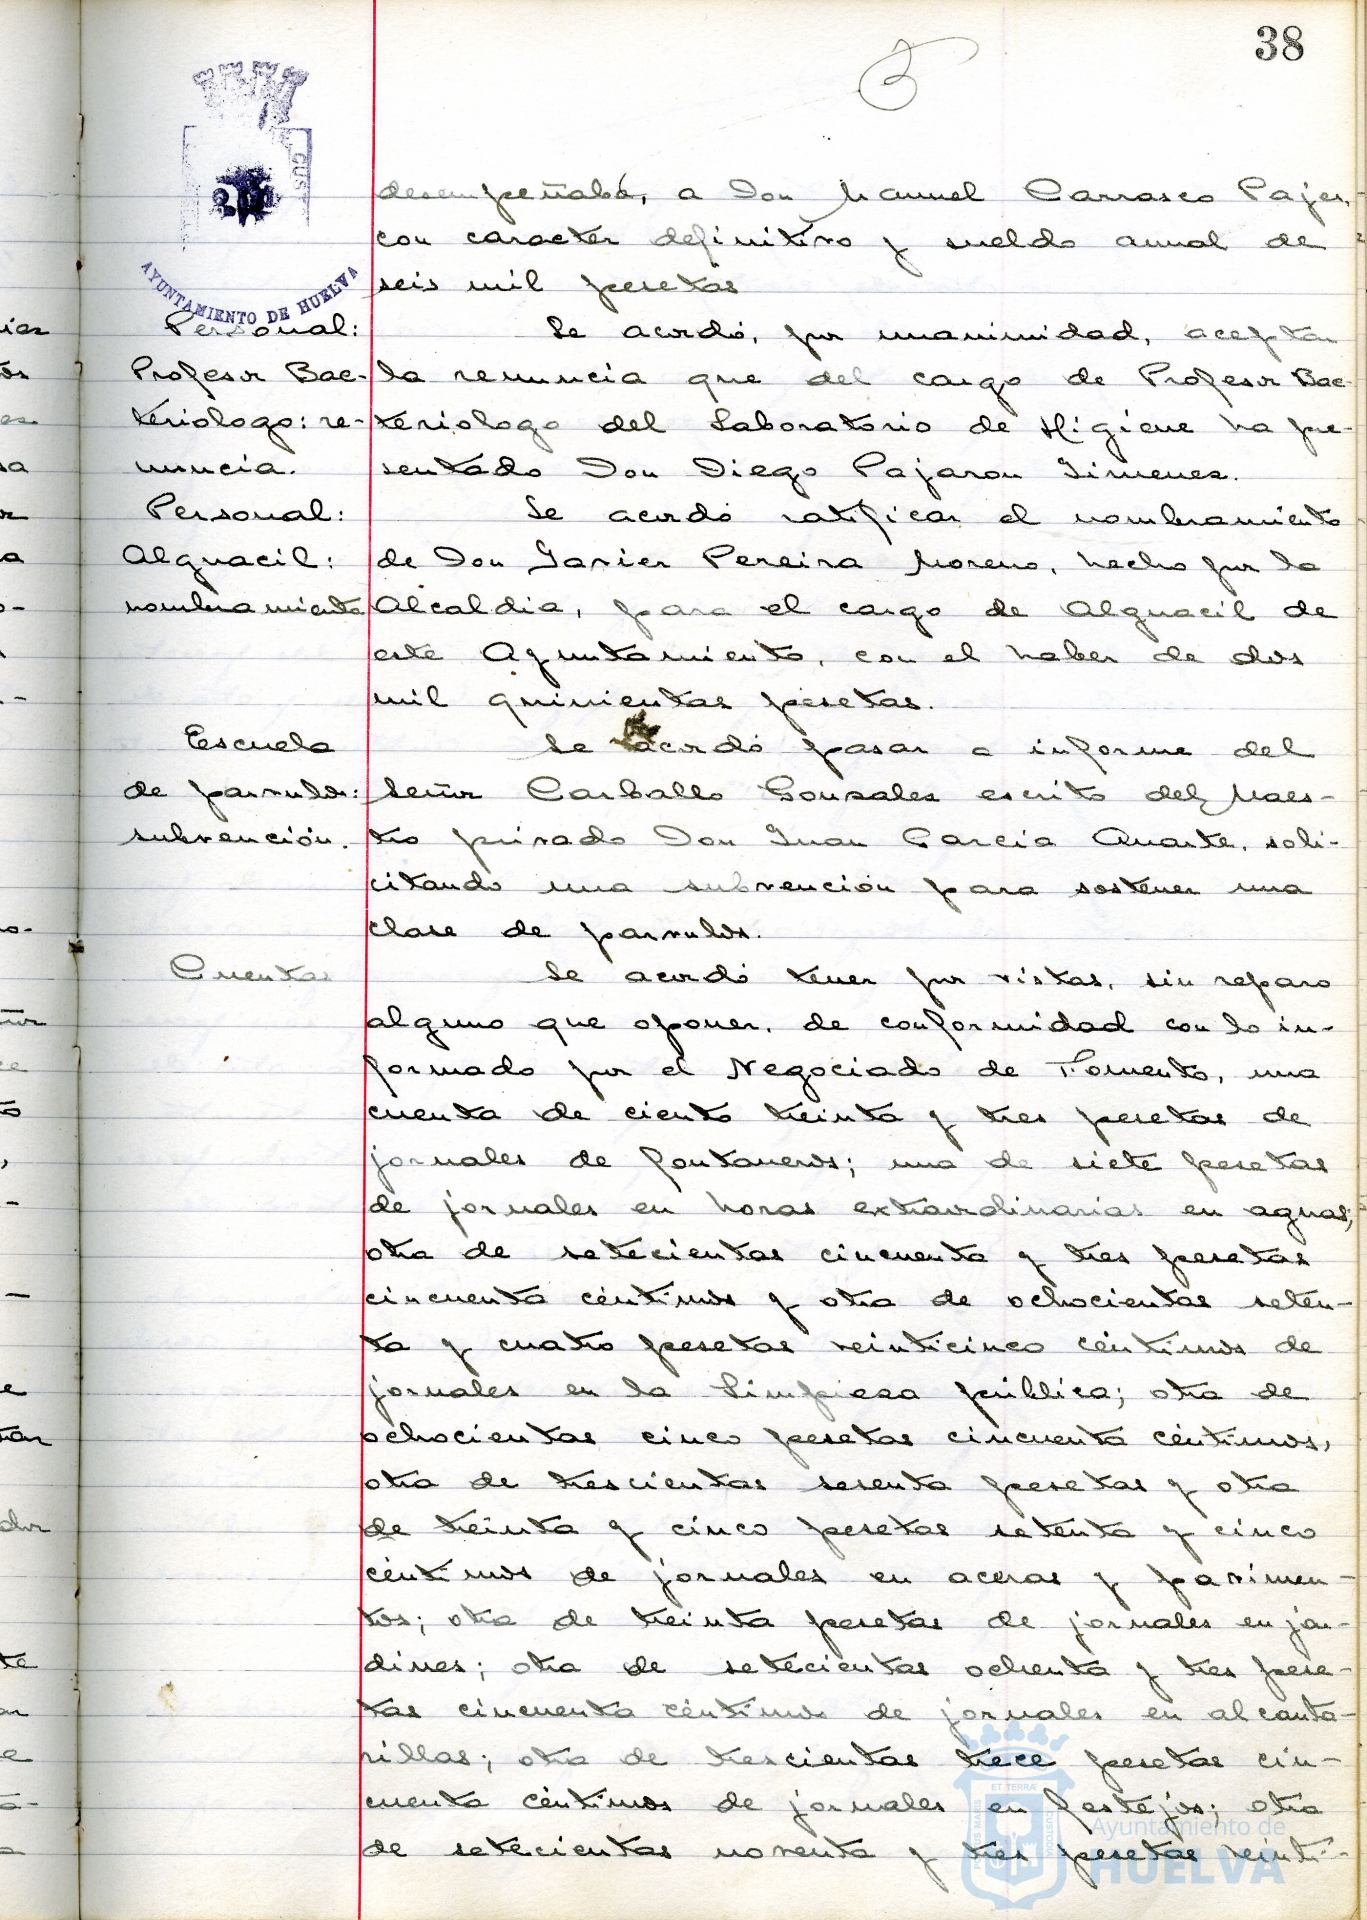 38
AYUNTAMIENTO DE HUELVA
desempeñaba, a Don Manuel Carrasco Pajer,
con caracter definitivo y sueldo anual de
seis mil pesetas
Personal:
Profesor Bac-
teriologo: re-
nuncia.
Se acordó, por unanimidad, aceptar
la renuncia que del cargo de Profesor Bac-
teriologo del Laboratorio de Higiene ha pre-
sentado Don Diego Pajaron Jimenez.
Personal:
Alguacil:
nombramiento
Se acordó ratificar el nombramiento
de Don Javier Pereira Moreno, hecho por la
Alcaldia, para el cargo de Alguacil de
este Ayuntamiento, con el haber de dos
mil quinientas pesetas.
Escuela
de parvulos:
subvención.
Se acordó pasar a informe del
Señor Carballo Gonzalez escrito del Maes-
tro privado Don Juan Garcia Anarte, soli-
citando una subvención para sostener una
clase de parvulos.
Cuentas
Se acordó tener por vistas, sin reparo
alguno que oponer, de conformidad con lo in-
formado por el Negociado de Fomento, una
cuenta de ciento treinta y tres pesetas de
jornales de fontaneros; una de siete pesetas
de jornales en horas extraordinarias en aguas;
otra de setecientas cincuenta y tres pesetas
cincuenta céntimos y otra de ochocientas seten-
ta y cuatro pesetas veinticinco céntimos de
jornales en la limpieza pública; otra de
ochocientas cinco pesetas cincuenta céntimos,
otra de trescientas sesenta pesetas y otra
de treinta y cinco pesetas setenta y cinco
céntimos de jornales en aceras y pavimen-
tos; otra de treinta pesetas de jornales en jar-
dines; otra de setecientas ochenta y tres pese-
tas cincuenta céntimos de jornales en alcanta-
rillas; otra de trescientas trece pesetas cin-
cuenta céntimos de jornales en festejos; otra
de setecientas noventa y tres pesetas veinti-
Ayuntamiento de
HUELVA